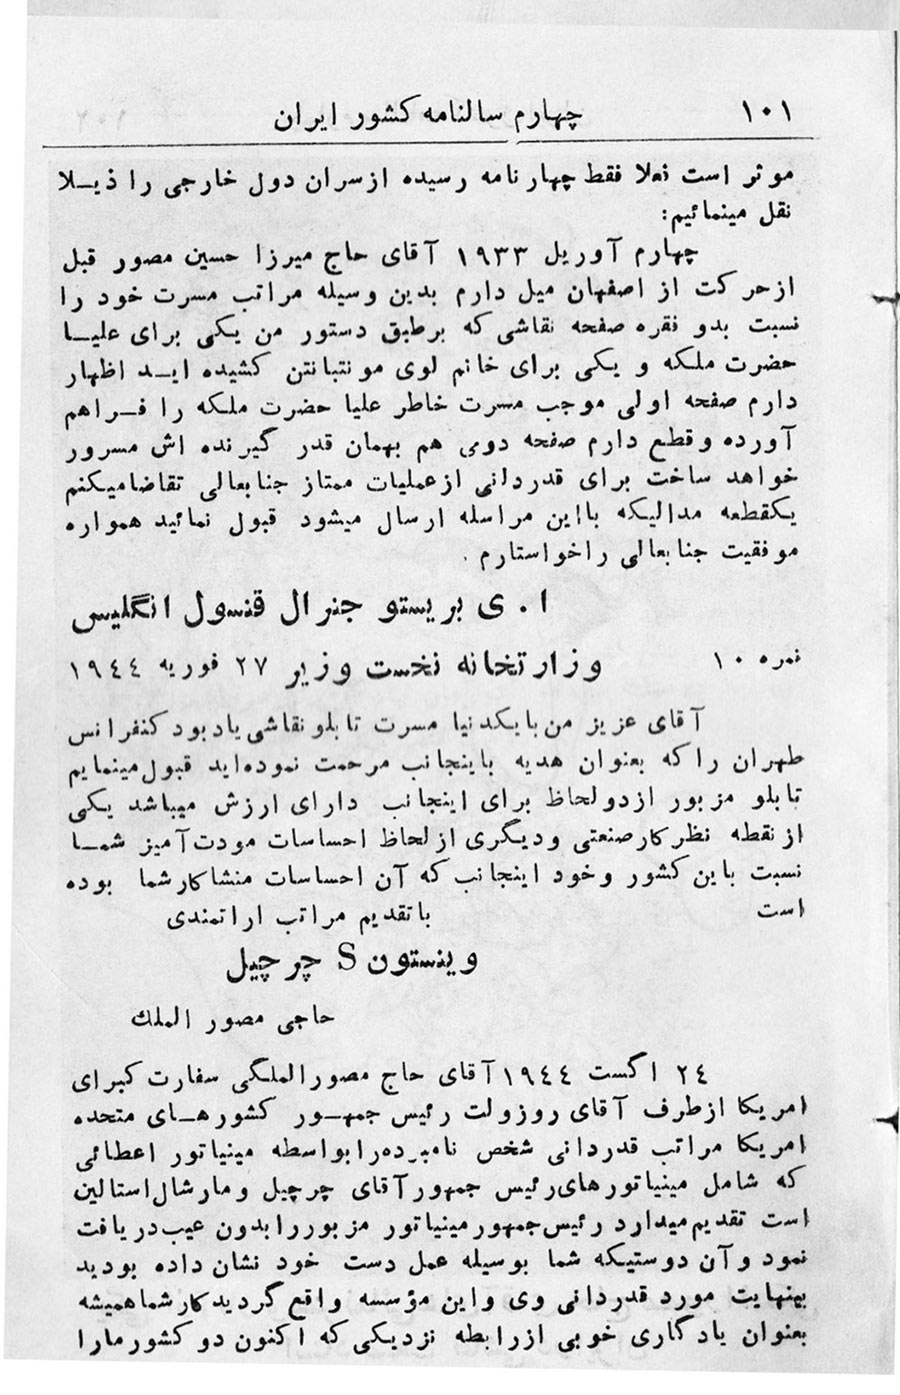 ۱۰۱ چهارم سالنامه کشور ایران
موثر است فعلا فقط چهار نامه رسیده از سران دول خارجی را ذیـلا
نقل مینمائیم:
چهارم آوریل ۱۹۳۳ آقای حاج میرزا حسین مصور قبل
از حرکت از اصفهان میل دارم بدین وسیله مراتب مسرت خود را
نسبت بدو فقره صفحه نقاشی که بر طبق دستور من یکی برای علیـا
حضرت ملکه و یکی برای خانم لوی مونتباتن کشیده ایـد اظهار
دارم صفحه اولی موجب مسرت خاطر علیا حضرت ملکه را فـراهم
آورده و قطع دارم صفحه دومی هم بهمان قدر گیرنده اش مسرور
خواهد ساخت برای قدردانی از عملیات ممتاز جنابعالی تقاضا میکنم
یکقطعه مدالیکه با این مراسله ارسال میشود قبول نمائید همواره
موفقیت جنابعالی را خواستارم .
ا . ی بریستو جنرال قنسول انگلیس
نمره ۱۰ وزارتخانه نخست وزیر ۲۷ فوریه ۱۹٤٤
آقای عزیز من با یکدنیا مسرت تابلو نقاشی یاد بود کنفرانس
طهران را که بعنوان هدیه باینجانب مرحمت نموده‌اید قبول مینمایم
تابلو مزبور از دو لحاظ برای اینجانب دارای ارزش میباشد یکی
از نقطه نظر کار صنعتی و دیگری از لحاظ احساسات مودت آمیز شمـا
نسبت باین کشور و خود اینجانب که آن احساسات منشا کار شما بوده
است با تقدیم مراتب اراتمندی
وینستون S چرچیل
حاجی مصور الملك
۲٤ اگست ۱۹٤٤ آقای حاج مصورالملکی سفارت کبرای
امریکا از طرف آقای روزولت رئیس جمهـور کشورهـای متحده
امریکا مراتب قدردانی شخص نامبرده را بواسطه مینیاتور اعطائی
که شامل مینیاتورهای رئیس جمهور آقای چرچیل و مارشال استالین
است تقدیم میدارد رئیس جمهور مینیاتور مزبور را بدون عیب دریافت
نمود و آن دوستیکه شما بوسیله عمل دست خود نشان داده بودید
بینهایت مورد قدردانی وی و این مؤسسه واقع گردید کار شما همیشه
بعنوان یادگاری خوبی از رابطه نزدیکی که اکنون دو کشور ما را